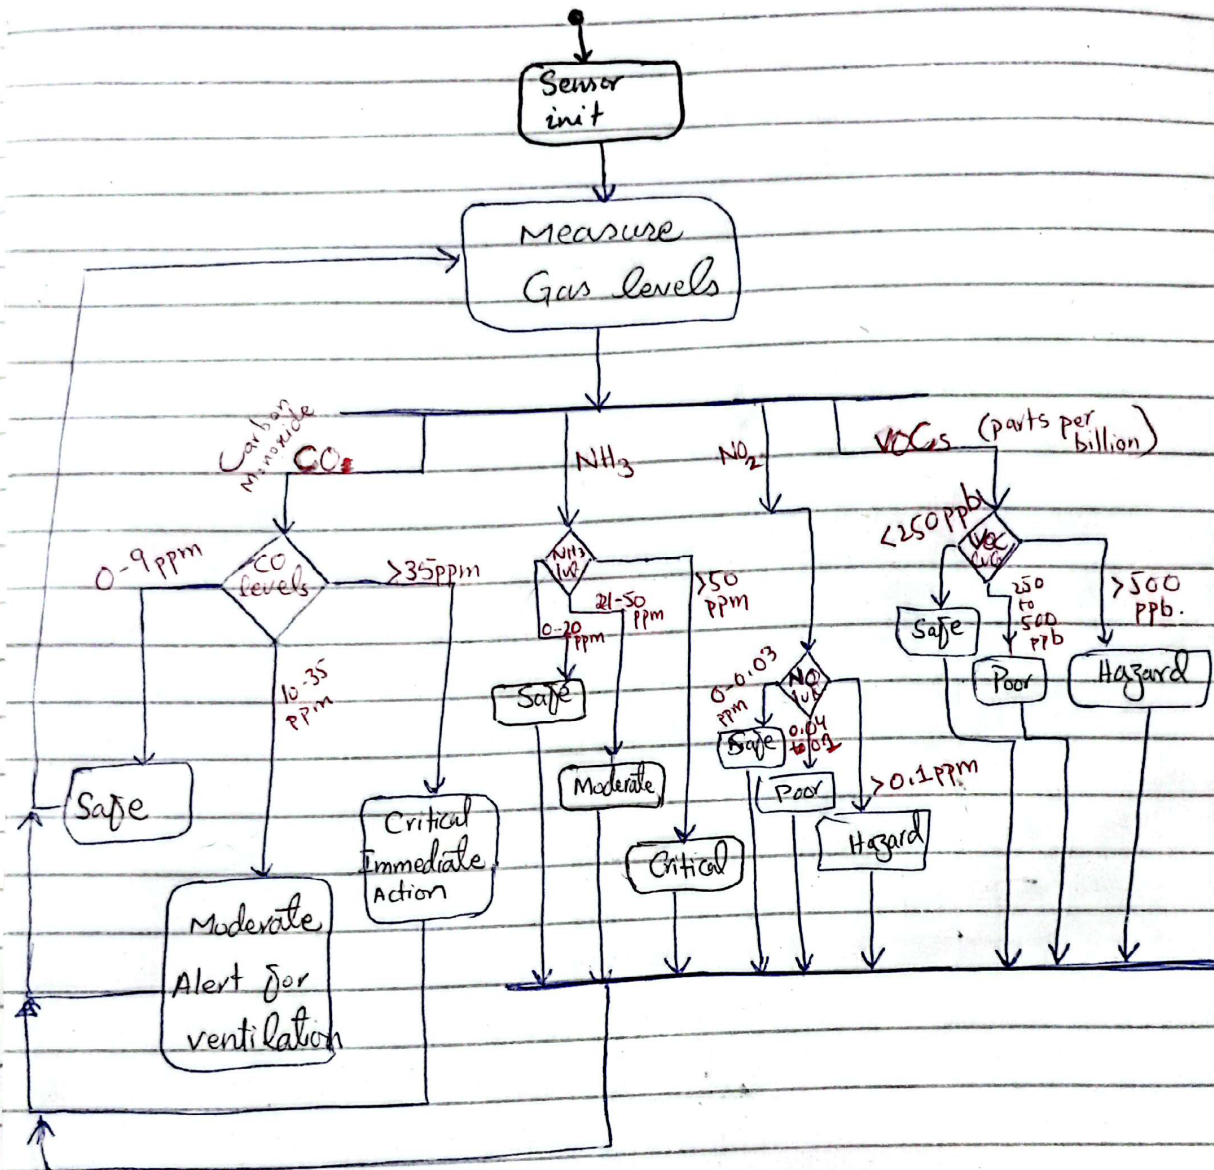 Sensor
init
Measure
Gas levels
Carbon
Monoxide
CO
NH3
NO2
VOCs
(parts per
billion)
0-9 ppm
CO
levels
>35ppm
10-35
ppm
Safe
Moderate
Alert for
ventilation
Critical
Immediate
Action
NH3
lvl
0-20
ppm
21-50
ppm
>50
ppm
Safe
Moderate
Critical
NO
lvl
0-0.03
ppm
0.04
to 0.1
>0.1ppm
Safe
Poor
Hazard
<250ppb
VOC
250
to
500
ppb
>500
ppb.
Safe
Poor
Hazard